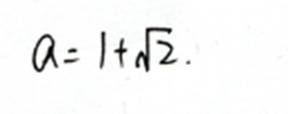 a = 1+√2.